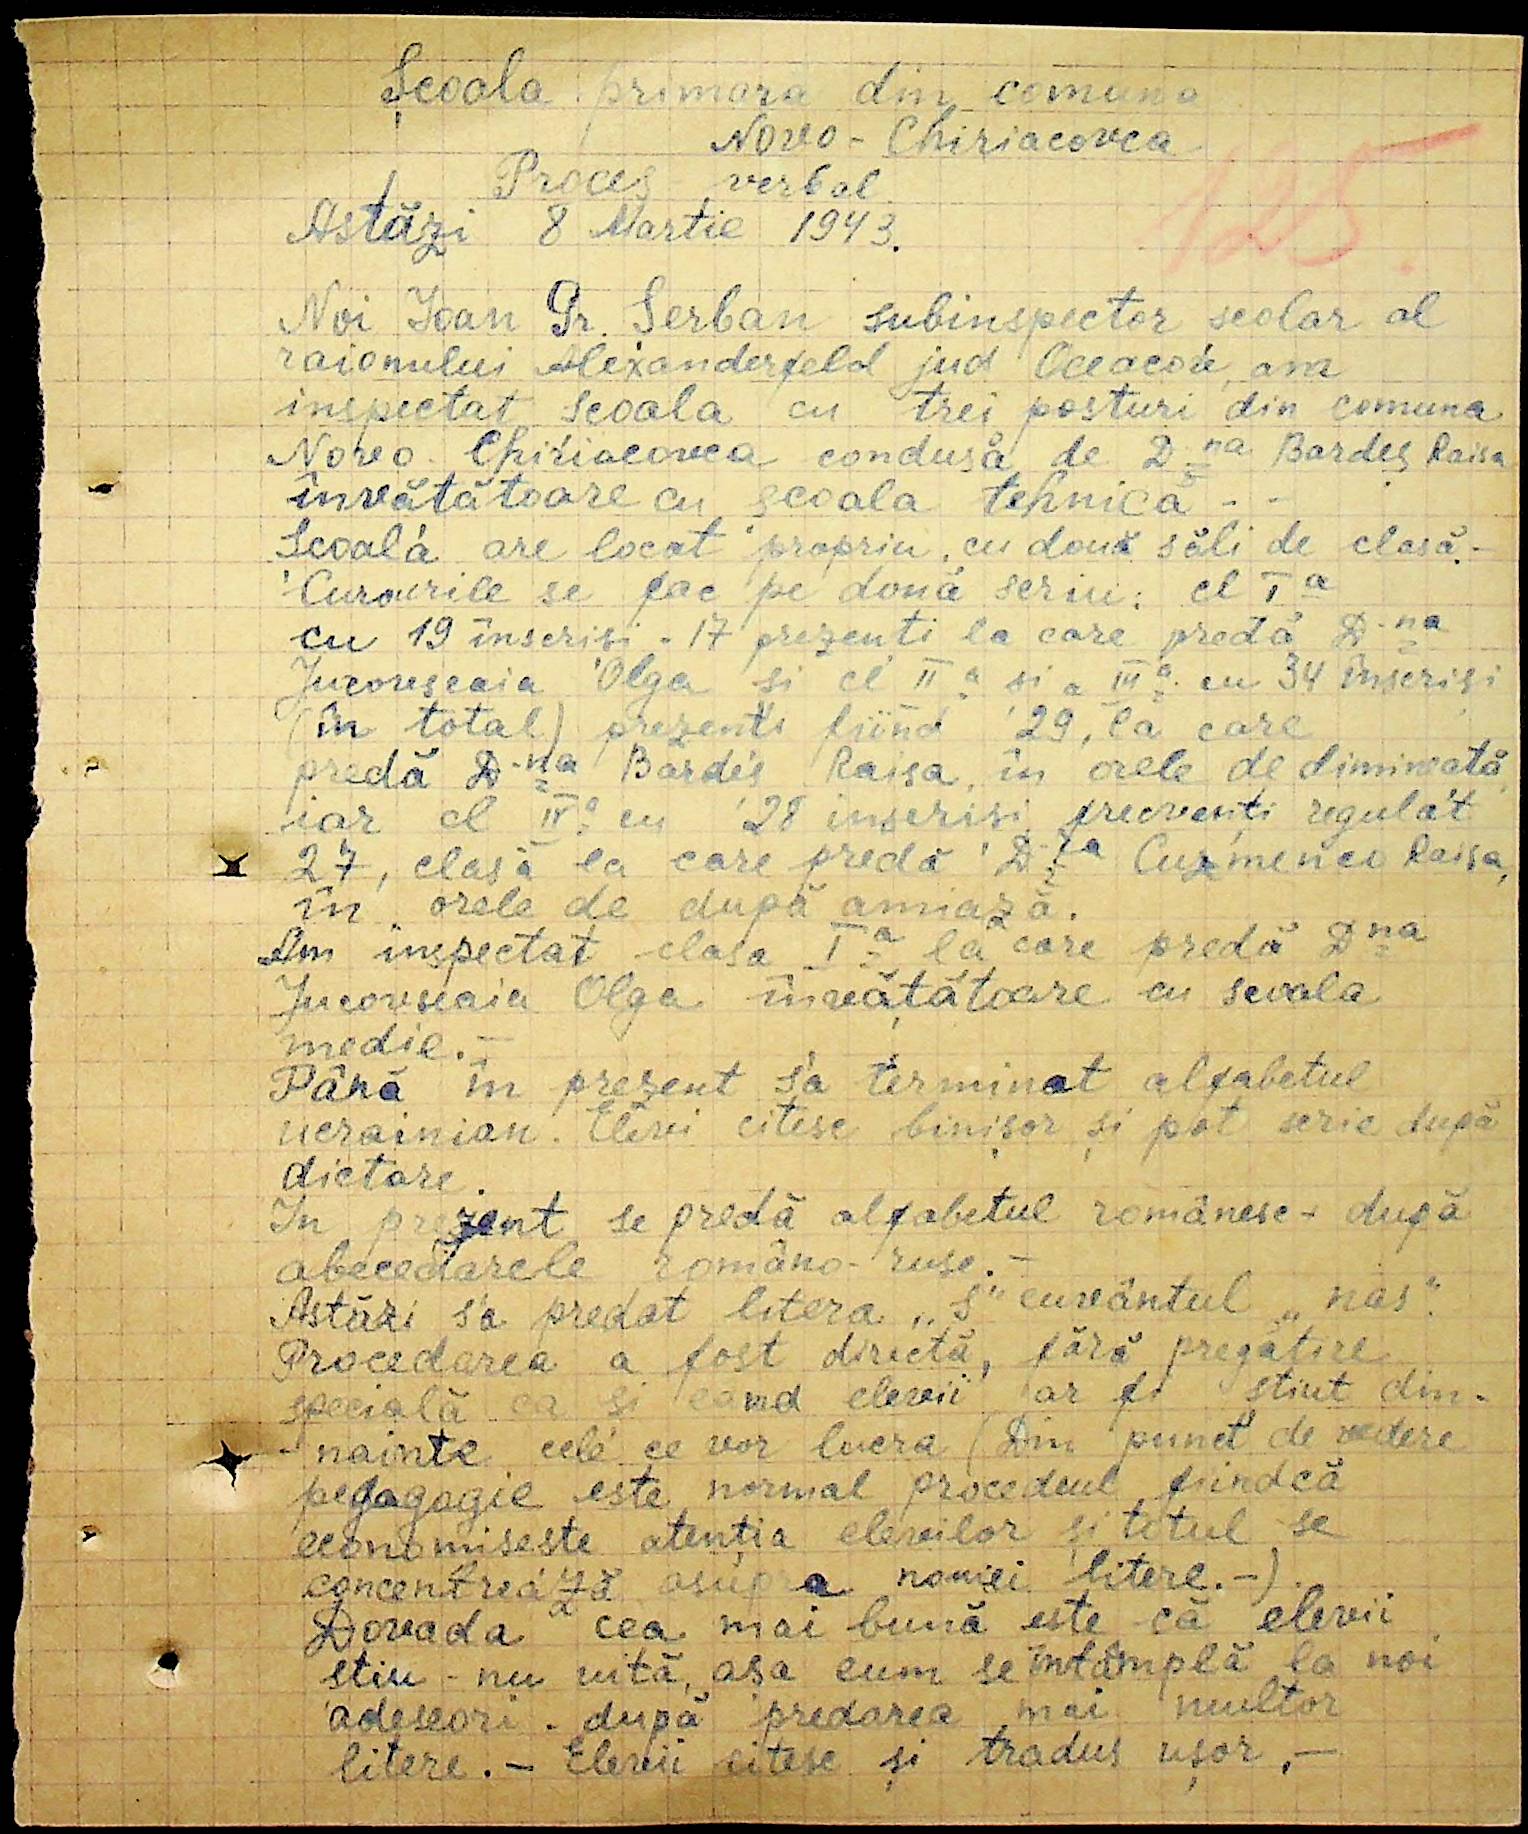 Școala primara din comuna
Novo - Chiriacovca
Proces verbal
Astăzi 8 Martie 1943.
125.
Noi Ioan Gr. Serban subinspector scolar al
raionului Alexanderfeld jud Oceacov, am
inspectat scoala cu trei posturi din comuna
Novo Chiriacovca condusă de D-na Bardeș Raisa
învătătoare cu școala tehnică - -
Scoala are local propriu, cu două săli de clasă.-
Cursurile se fac pe două serii: cl I a
cu 19 înscrisi - 17 prezenti la care predă D-na
Jucovscaia Olga și cl II a si a III a cu 34 înscriși
(în total) prezenți fiind 29, la care
predă D-na Bardes Raisa, în orele de dimineată,
iar cl IV a cu 28 inscrisi, frecvenți regulat
27, clasă la care predă D-ra Cuzmenco Raisa,
în orele de după amiază.
Am inspectat clasa I a la care predă D na
Jucovscaia Olga învățătoare cu scoala
medie.-
Până în prezent s'a terminat alfabetul
ucrainian. Elevi citesc binișor și pot scrie după
dictare.
In prezent se predă alfabetul românesc - după
abecedarele româno-ruse.-
Astăzi s'a predat litera „s" cuvântul „nas".
Procedarea a fost directă, fără pregătire
specială ca și cand elevii ar fi stiut din-
nainte cele ce vor lucra (Din punct de vedere
pegagogic este normal procedeul fiindcă
economiseste atenția elevilor și totul se
concentrează asupra nouiei litere.-)
Dovada cea mai bună este că elevii
stiu - nu uită, asa cum se întâmplă la noi
adeseori - după predarea mai multor
litere. - Elevii citesc și traduc ușor. -